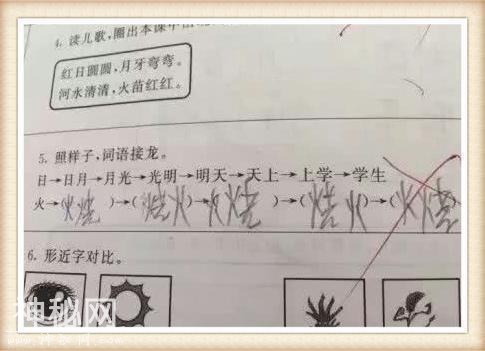 4. 读儿歌，圈出本课中
红日圆圆，月牙弯弯。
河水清清，火苗红红。
5. 照样子，词语接龙。
日→日月→月光→光明→明天→天上→上学→学生
火→(火烧)→(烧火)→(火烧)→(烧火)→(火烧)
6. 形近字对比。
神秘网